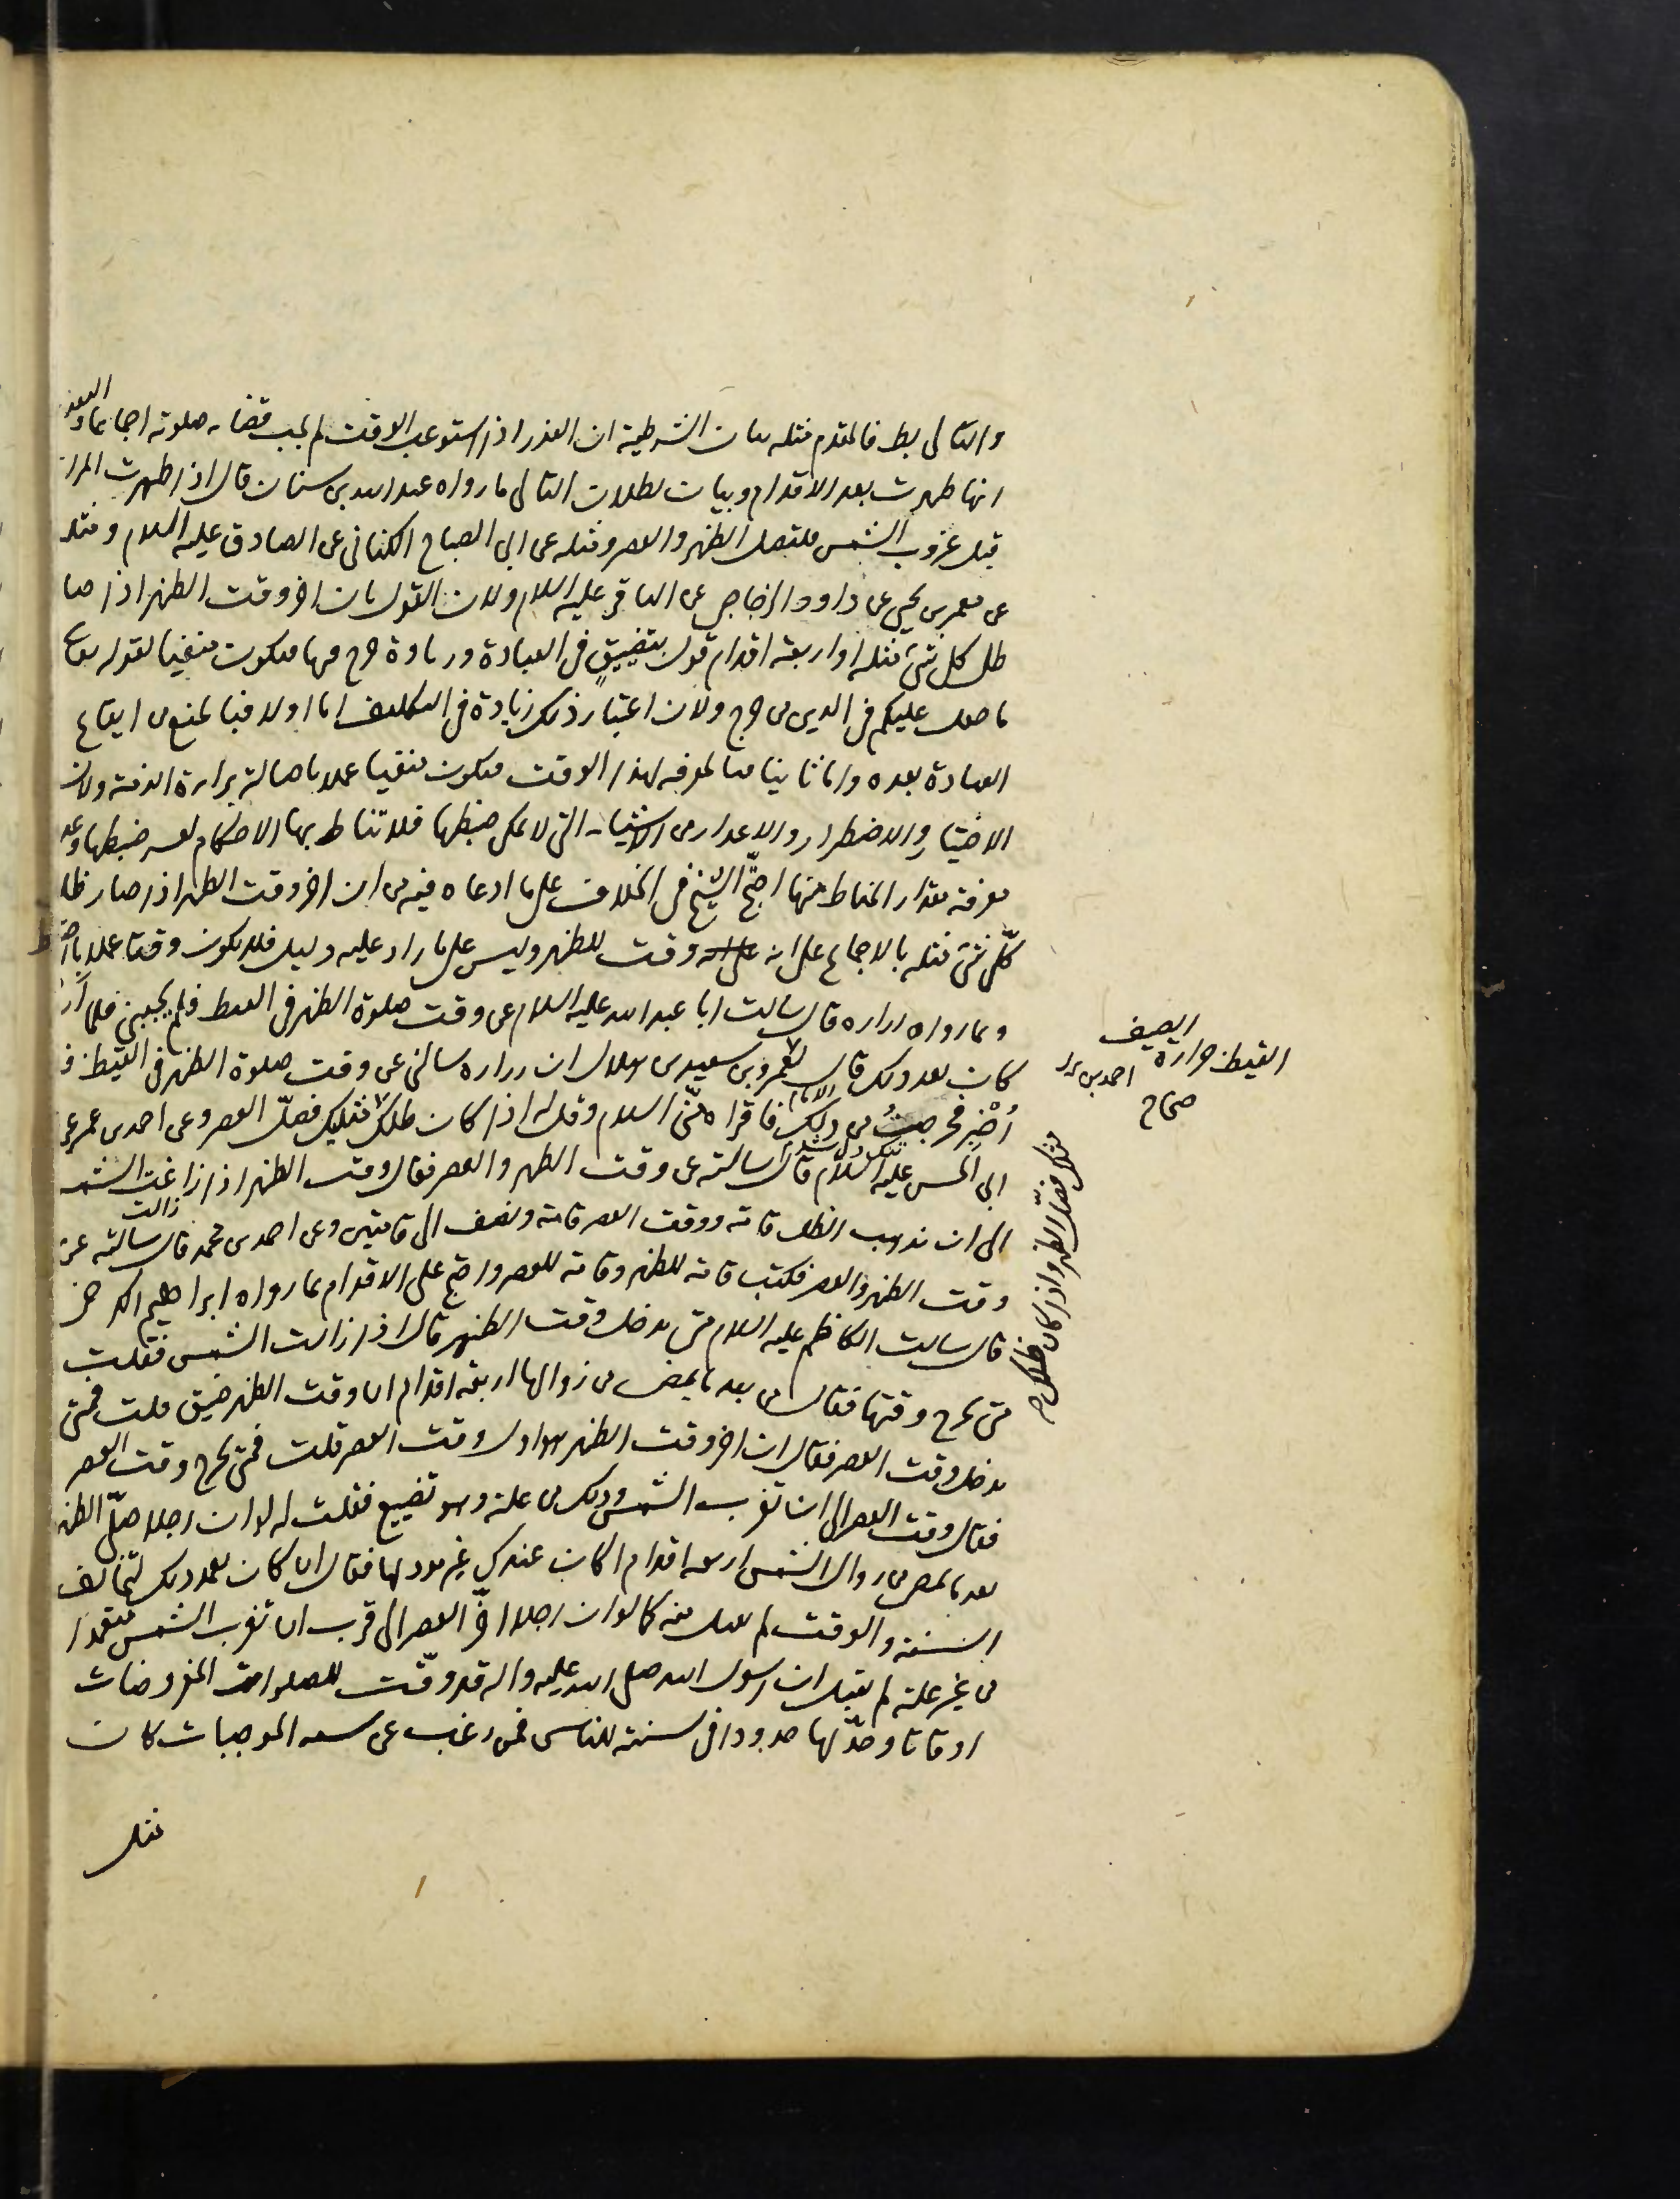 والتالى بط فالمقدم مثله بيان الشرطية ان العذر اذا استوعب الوقت لم يجب قضاء صلوته اجماعا والتقدير
انها طهرت بعد الاقدام وبيان بطلان التالى ما رواه عبد الله بن سنان قال اذا طهرت المراة
قبل غروب الشمس فلتصل الظهر والعصر ومثله عن ابى الصباح الكنانى عن الصادق عليه السلام ومثله
عن معمر بن يحيى عن داود الزجاجى عن الباقر عليه السلام ولان القول بان اخر وقت الظهر اذا صار
ظل كل شئ مثله او اربعة اقدام قول بتضييق فى العبادة وزيادة حرج فيها فيكون منفيا لقوله تعالى
ما جعل عليكم فى الدين من حرج ولان اعتبار ذلك زيادة فى التكليف اما اولا فبالمنع من ايقاع
العبادة بعده واما ثانيا فبالمعرفة لهذا الوقت فيكون منفيا عملا باصالة براءة الذمة ولان
الاختيار والاضطرار والاعذار من الاشياء التى لا يمكن ضبطها فلا تناط بها الاحكام لعسر ضبطها وعدم
معرفة مقدار المناط منها احتجّ الشيخ فى الخلاف على ما ادعاه فيه من ان اخر وقت الظهر اذا صار ظل
كلّ شئ مثله بالاجماع على انه وقت للظهر وليس على ما زاد عليه دليل فلا يكون وقتا عملا بالاحتياط
وبما رواه زرارة قال سالت ابا عبد الله عليه السلام عن وقت صلوة الظهر فى القيظ فلم يجبنى فلما ان
كان بعد ذلك قال لعمرو بن سعيد بن هلال ان زرارة سالنى عن وقت صلوة الظهر فى القيظ فلم
أُخبره فحرجتُ من ذلك فاقراه منّى السلام وقل له اذا كان ظلك مثليك فصلّ العصر وعن احمد بن عمر عن
ابى الحسن عليه السلام قال سالته عن وقت الظهر والعصر فقال وقت الظهر اذا زاغت الشمس
زالت
الى ان يذهب الظل قامة ووقت العصر قامة ونصف الى قامتين وعن احمد بن محمد قال سالته عن
وقت الظهر والعصر فكتب قامة للظهر وقامة للعصر واحتج على الاقدام بما رواه ابراهيم الكرخى
قال سالت الكاظم عليه السلام متى يدخل وقت الظهر قال اذا زالت الشمس فقلت
متى يخرج وقتها فقال من بعد ما يمضى من زوالها اربعة اقدام ان وقت الظهر ضيق قلت فمتى
يدخل وقت العصر فقال ان اخر وقت الظهر هو اول وقت العصر قلت فمتى يخرج وقت العصر
فقال وقت العصر الى ان تغرب الشمس وذلك من علة وهو تضييع فقلت له لو ان رجلا صلّى الظهر
بعد ما يمضى من زوال الشمس اربعة اقدام اكان عندك غير مود لها فقال ان كان تعمد ذلك ليخالف
السنة والوقت لم يقبل منه كما لو ان رجلا اخّر العصر الى قرب ان تغرب الشمس متعمدا
من غير علة لم يقبل ان رسول الله صلى الله عليه واله قد وقّت للصلوات المفروضات
اوقاتا وحدّ لها حدودا فى سنته للناس فمن رغب عن سنة الموجبات كان
مثل
القيظ حرارة الصيف
صحاح
مثلك فصلّ الظهر واذا كان ظلك صح